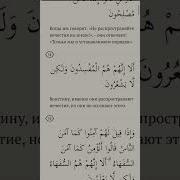 مُصْلِحُونَ
Когда им говорят: «Не распространяйте
нечестия на земле!», – они отвечают:
«Только мы и устанавливаем порядок».
أَلَا إِنَّهُمْ هُمُ الْمُفْسِدُونَ وَلَٰكِن
لَّا يَشْعُرُونَ
Воистину, именно они распространяют
нечестие, но они не осознают этого.
وَإِذَا قِيلَ لَهُمْ آمِنُوا كَمَا آمَنَ
النَّاسُ قَالُوا أَنُؤْمِنُ كَمَا آمَنَ
السُّفَهَاءُ ۗ أَلَا إِنَّهُمْ هُمُ السُّفَهَاءُ